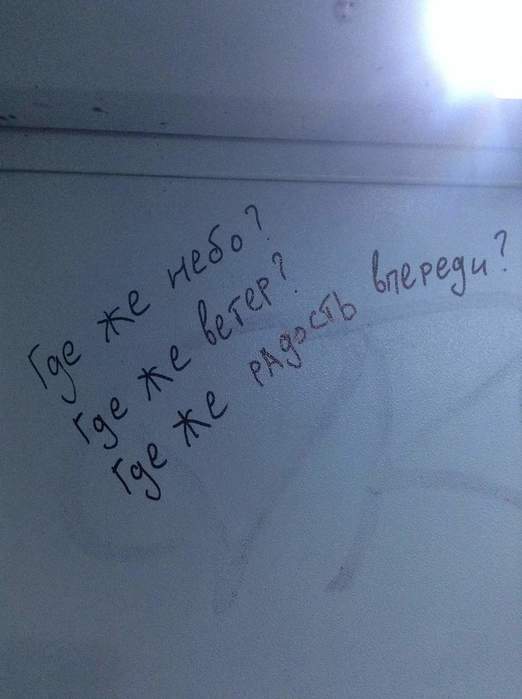 Где же небо?
Где же ветер?
Где же радость впереди?